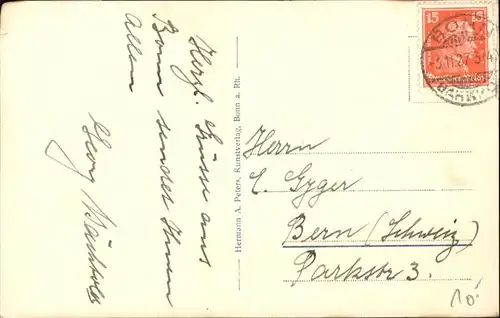 Herzl. Grüsse aus
Bonn sendet Ihnen
Allen
Georg
Hermann A. Peters, Kunstverlag, Bonn a. Rh.
15 15
BONN
11.27
BAHNHOF
Herrn
E. Gyger
Bern (Schweiz)
Parkstr 3.
10.-